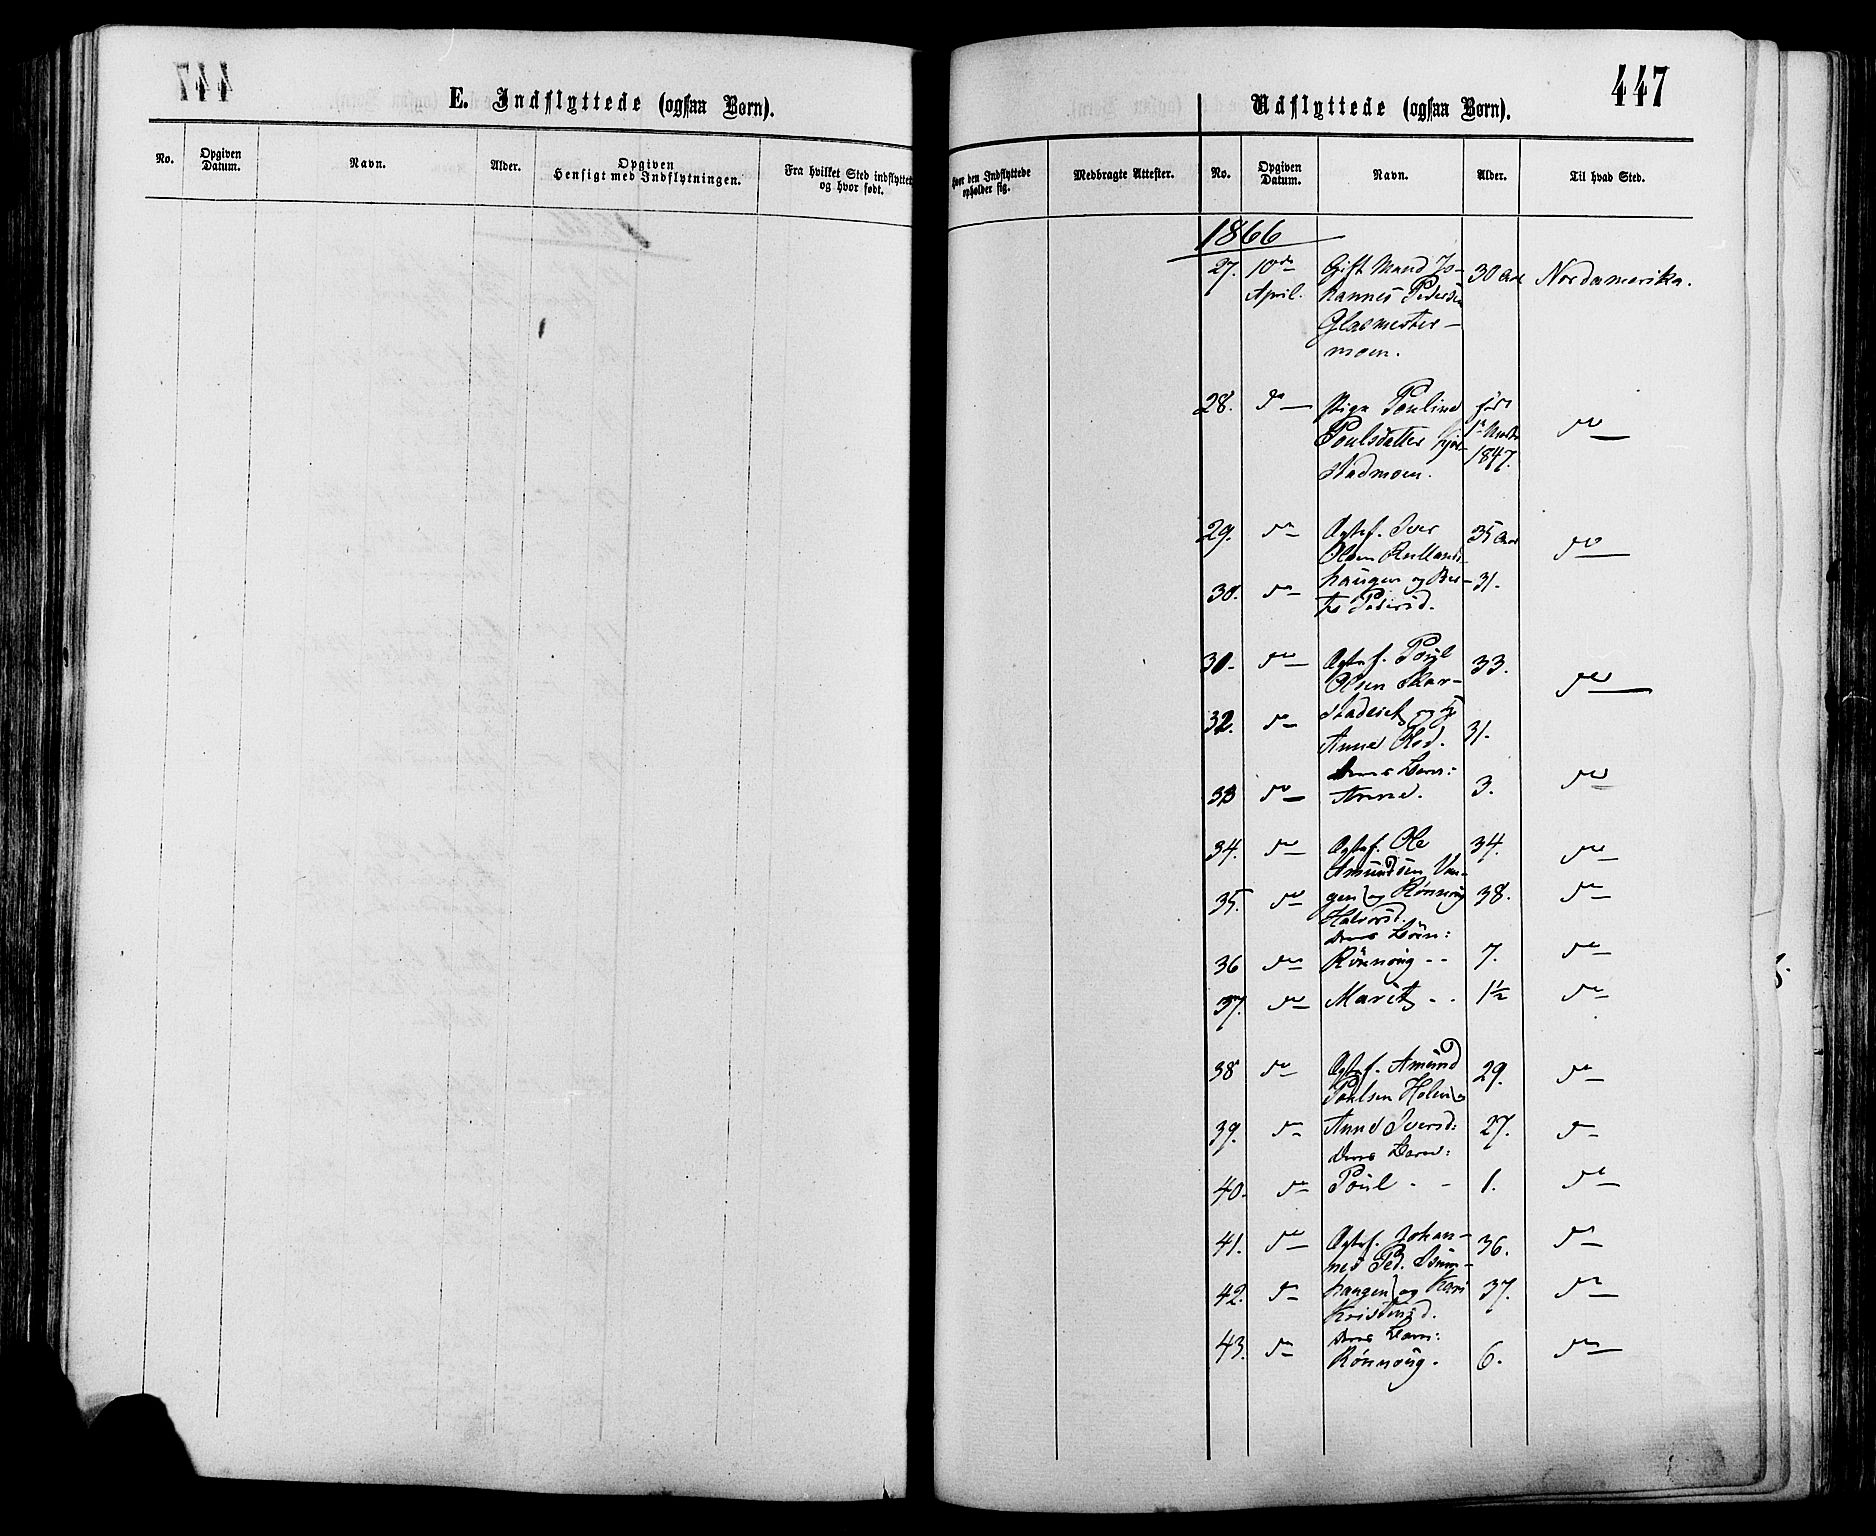 447
E. Indflyttede (ogsaa Børn).
No.
Opgiven Datum.
Navn.
Alder.
Opgiven Hensigt med Indflytningen.
Fra hvilket Sted indflyttet og hvor født.
447
Udflyttede (ogsaa Børn).
Hvor den Indflyttede opholder sig.
Medbragte Attester.
No.
Opgiven Datum.
Navn.
Alder.
Til hvad Sted.
1866
27. 10de Gift Mand Jo- 30 Aar Nordamerika.
April. hannes Pedersen
Glasmester-
moen.
28. do Pige Pouline født
Poulsdatter 1ste Marts do
stadmoen. 1847.
29. do Gstf. Iver 35 Aar
Olsen do
30. do haugen og Ber- 31.
te Pedersd.
31. do Gstf. Poul 33.
Olsen Skar- do
32. do og
Anne Olsd. 31.
Deres Barn: do
33 do Anne. 3.
34. do Gstf. Ole 34. do
Amundsen Van-
35. do gen og Rønnoug 38. do
Halvorsd.
Deres Børn:
36 do Rønnoug - - 7. do
37. do Marit - - 1½ do
38 do Gstf. Amund 29. do
Poulsen Holen
39. do Anne Iversd: 27. do
Deres Barn:
40. do Poul - - 1. do
41. do Gstf. Johan- 36. do
nes Ped.
42. do haugen og Kari 37. do
Kristensd.
43. do Deres Barn: do
Rønnoug. 6.